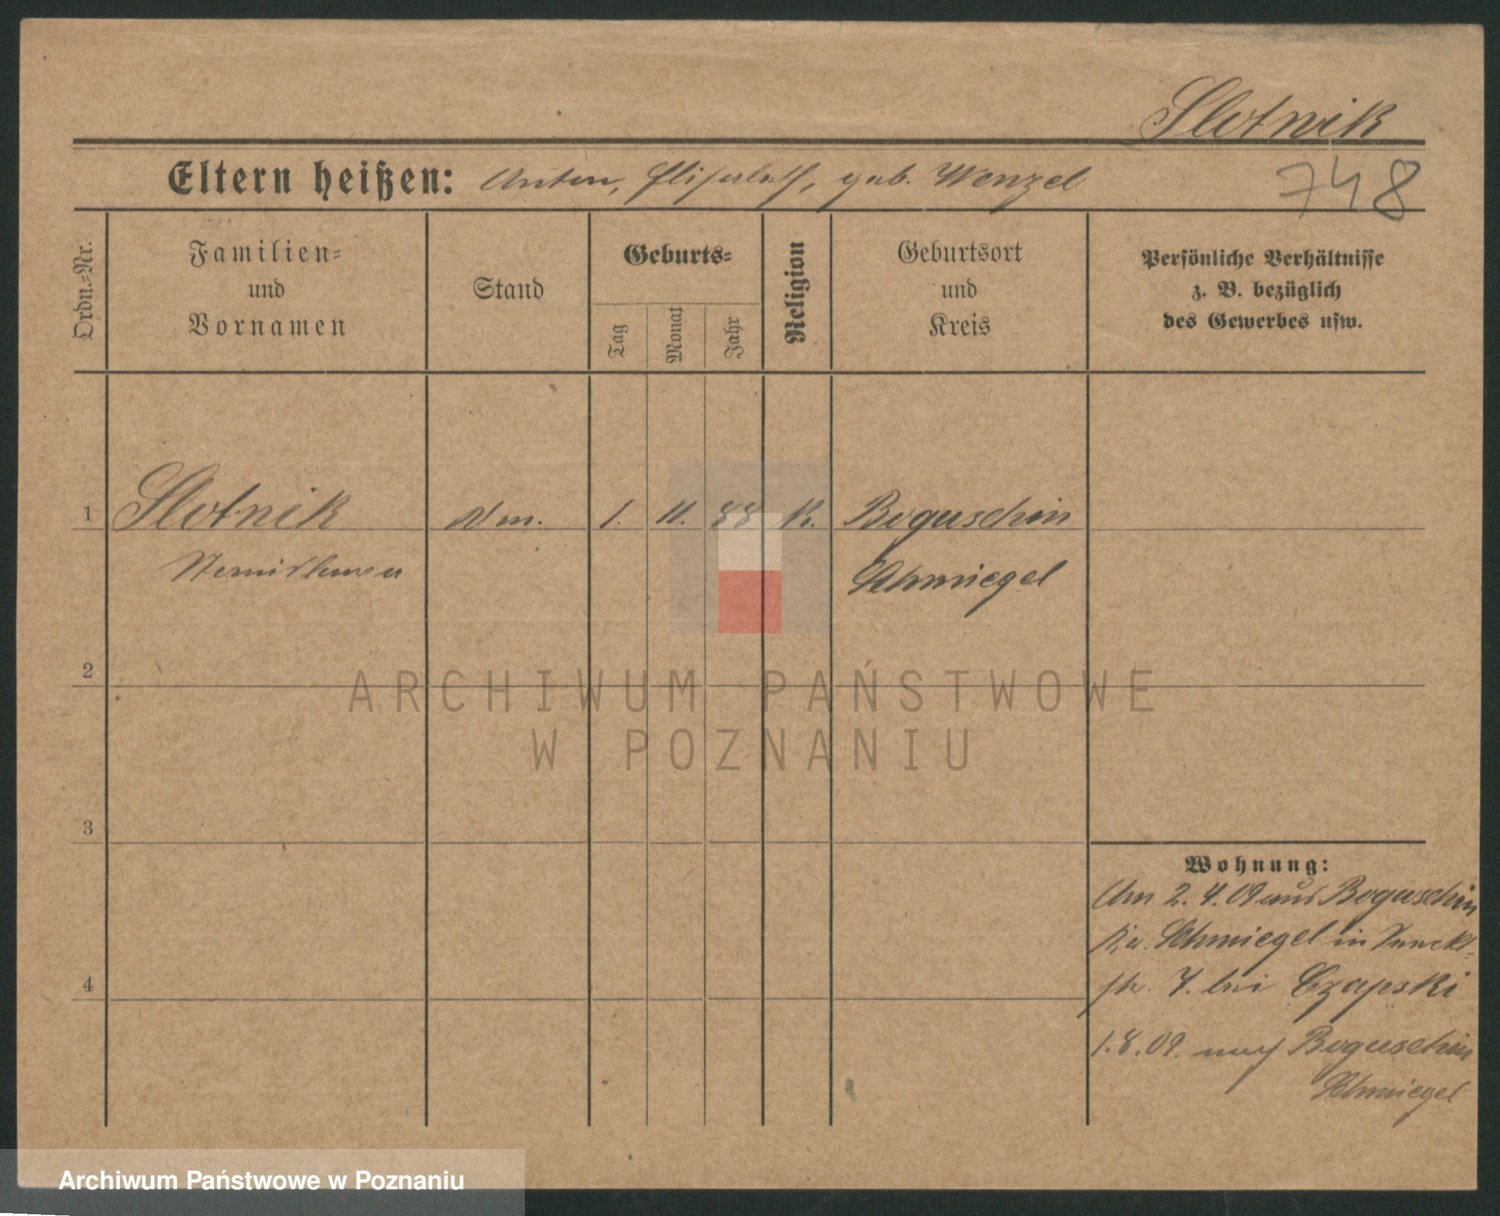 Slotnik
Eltern heißen: Anton, Elisabeth, geb. Wenzel
748
Ordn.-Nr.
Familien-
und
Vornamen
Stand
Geburts-
Tag
Monat
Jahr
Religion
Geburtsort
und
Kreis
Persönliche Verhältnisse
z. B. bezüglich
des Gewerbes usw.
1 Slotnik 1. 11. 88 K. Boguschin
Schmiegel
2
3
4
Wohnung:
Am 2.4.09 aus Boguschin
Schmiegel in
str. 7. bei Czapski
1.8.09. nach Boguschin
Schmiegel
ARCHIWUM PAŃSTWOWE
W POZNANIU
Archiwum Państwowe w Poznaniu